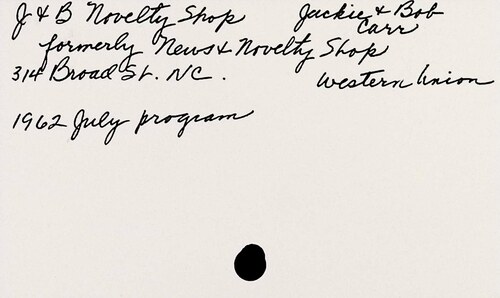 J & B Novelty Shop Jackie & Bob Carr
formerly News & Novelty Shop
314 Broad St. NC. Western Union
1962 July program